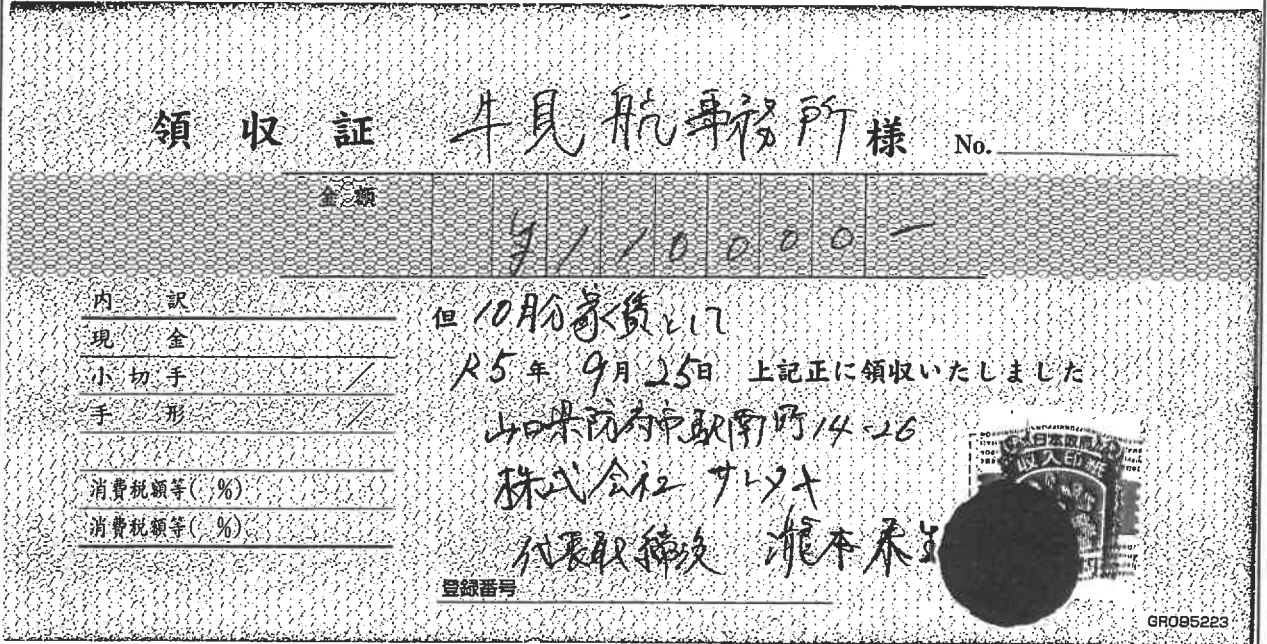 領収証 牛見航事務所様 No.
金額
¥110000-
内訳
現金
小切手
手形
消費税額等( %)
消費税額等( %)
但 10月分家賃として
R5年 9月25日 上記正に領収いたしました
山口県防府市駅南町14-26
株式会社 サレタナ
代表取締役 瀧本泰生
登録番号
日本政府
収入印紙
GR095223